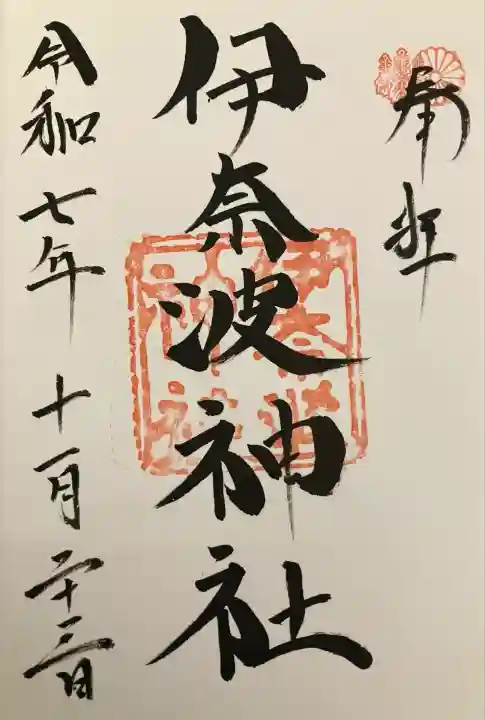 奉拝
伊奈波神社
令和七年十一月二十三日